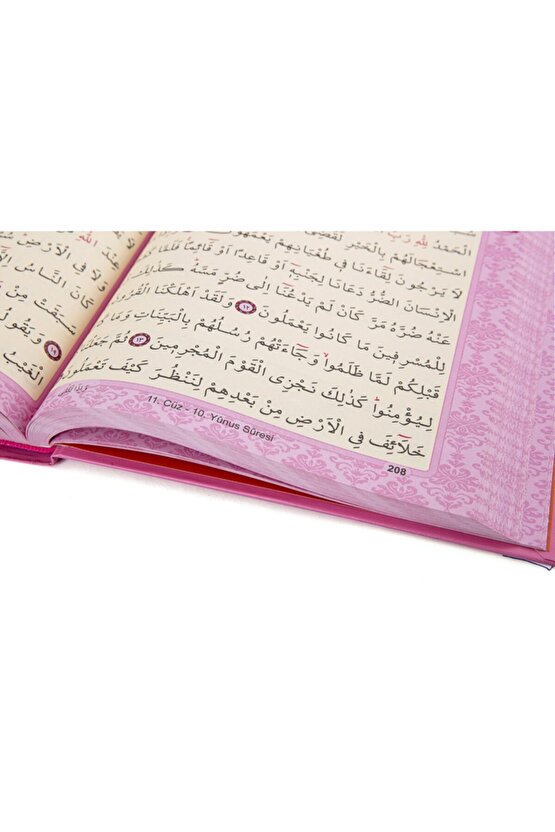 الْحَمْدُ لِلّٰهِ رَبِّ
اسْتِعْجَالَهُمْ بِالْخَيْرِ لَقُضِيَ
لَا يَرْجُونَ لِقَٓاءَنَا فِي طُغْيَانِهِمْ يَعْمَهُونَ
الْاِنْسَانَ الضُّرُّ دَعَانَا لِجَنْبِهٖٓ اَوْ قَاعِدًا اَوْ قَٓائِمًا فَلَمَّا
عَنْهُ ضُرَّهُ مَرَّ كَاَنْ لَمْ يَدْعُنَٓا اِلٰى ضُرٍّ مَسَّهُ كَذٰلِكَ
لِلْمُسْرِفِينَ مَا كَانُوا يَعْمَلُونَ ١٢ وَلَقَدْ اَهْلَكْنَا الْقُرُونَ
قَبْلِكُمْ لَمَّا ظَلَمُوا وَجَٓاءَتْهُمْ رُسُلُهُمْ بِالْبَيِّنَاتِ وَمَا
لِيُؤْمِنُوا كَذٰلِكَ نَجْزِي الْقَوْمَ الْمُجْرِمِينَ ١٣ ثُمَّ جَعَلْنَا
خَلَٓائِفَ فِي الْاَرْضِ مِنْ بَعْدِهِمْ لِنَنْظُرَ كَيْفَ تَعْمَلُونَ
11. Cüz - 10. Yûnus Sûresi
208
اللّٰهِ
وَلَا فِي الْاَرْضِ
كَانَ النَّاسُ
سَبَقَتْ مِنْ
١٩ وَيَقُولُ
الْغَيْبُ